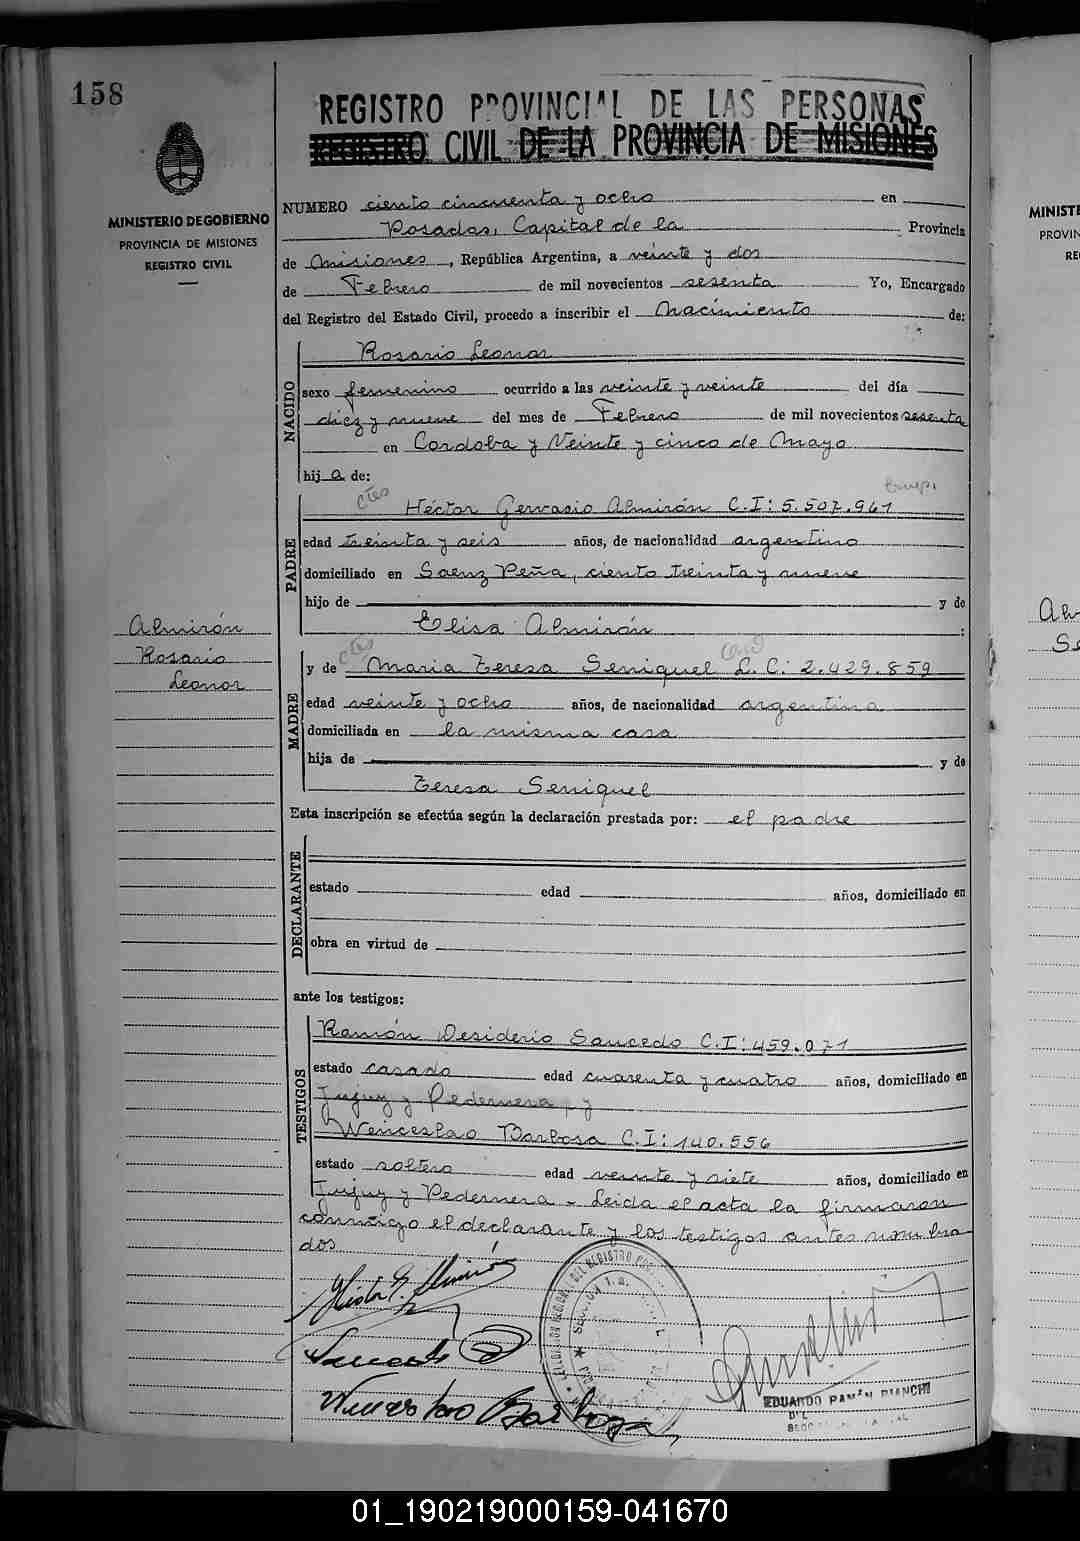 158
REGISTRO PROVINCIAL DE LAS PERSONAS
REGISTRO CIVIL DE LA PROVINCIA DE MISIONES
MINISTERIO DE GOBIERNO
PROVINCIA DE MISIONES
REGISTRO CIVIL
NUMERO ciento cincuenta y ocho en
Posadas, Capital de la Provincia
de Misiones, República Argentina, a veinte y dos
de Febrero de mil novecientos sesenta Yo, Encargado
del Registro del Estado Civil, procedo a inscribir el Nacimiento de:
NACIDO
Rosario Leonor
sexo femenino ocurrido a las veinte y veinte del día
diez y nueve del mes de Febrero de mil novecientos sesenta
en Cordoba y Veinte y cinco de Mayo
hija de:
PADRE
ctes
Héctor Gervasio Almirón C.I: 5.507.961
edad treinta y seis años, de nacionalidad argentino
domiciliado en Saenz Peña, ciento treinta y nueve
hijo de y de
Elisa Almirón :
Almirón
Rosario
Leonor
MADRE
ctes
y de Maria Teresa Seniquel L.C: 2.429.859
edad veinte y ocho años, de nacionalidad argentina
domiciliada en la misma casa
hija de y de
Teresa Seniquel
Esta inscripción se efectúa según la declaración prestada por: el padre
DECLARANTE
estado edad años, domiciliado en
obra en virtud de
ante los testigos:
TESTIGOS
Ramón Desiderio Saucedo C.I: 459.071
estado casado edad cuarenta y cuatro años, domiciliado en
Jujuy y Pedernera y
Wenceslao Barbosa C.I: 140.556
estado soltero edad veinte y siete años, domiciliado en
Jujuy y Pedernera - Leida el acta la firmaron
conmigo el declarante y los testigos antes nombra-
dos
EDUARDO RAMÓN BIANCHI
MINISTE
PROVIN
RE
01_190219000159-041670